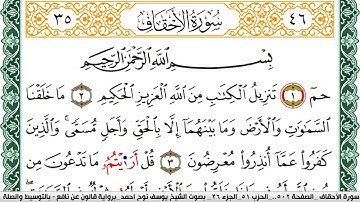 ٤٦ سُورَةُ الأَحْقَافِ ٣٥
بِسْمِ اللَّهِ الرَّحْمَٰنِ الرَّحِيمِ
حمٓ ١ تَنزِيلُ الْكِتَٰبِ مِنَ اللَّهِ الْعَزِيزِ الْحَكِيمِ ٢ مَا خَلَقْنَا
السَّمَٰوَٰتِ وَالْأَرْضَ وَمَا بَيْنَهُمَا إِلَّا بِالْحَقِّ وَأَجَلٍ مُّسَمًّى وَالَّذِينَ
كَفَرُوا عَمَّا أُنذِرُوا مُعْرِضُونَ ٣ قُلْ أَرَٰيْتُم مَّا تَدْعُونَ مِن
سورة الأحقاف .الصفحة ٥٠٢ .الحزب ٥١ .الجزء ٢٦ .بصوت الشيخ يوسف نوح احمد .برواية قالون عن نافع - بالتوسيط والصلة